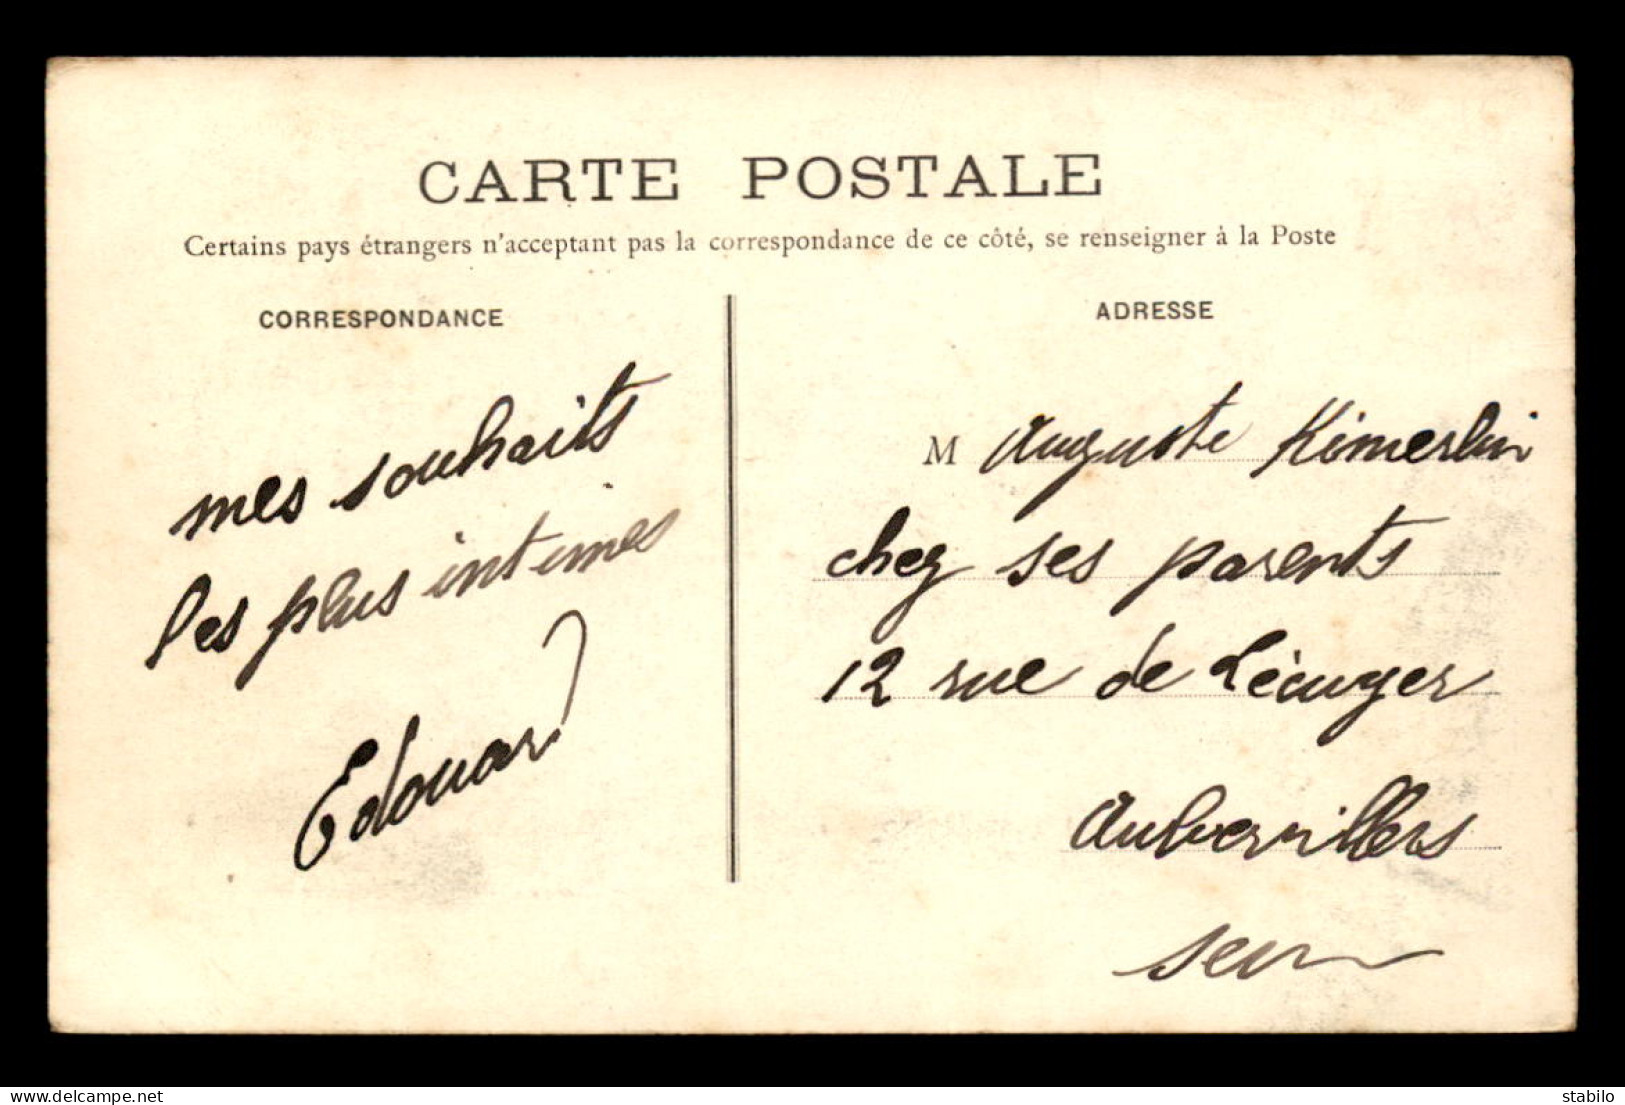 CARTE POSTALE
Certains pays étrangers n'acceptant pas la correspondance de ce côté, se renseigner à la Poste
CORRESPONDANCE
mes souhaits
les plus intimes
Edouard
ADRESSE
M Auguste Kimerlin
chez ses parents
12 rue de Lécuyer
Aubervillers
Seine
delcampe.net
stabilo